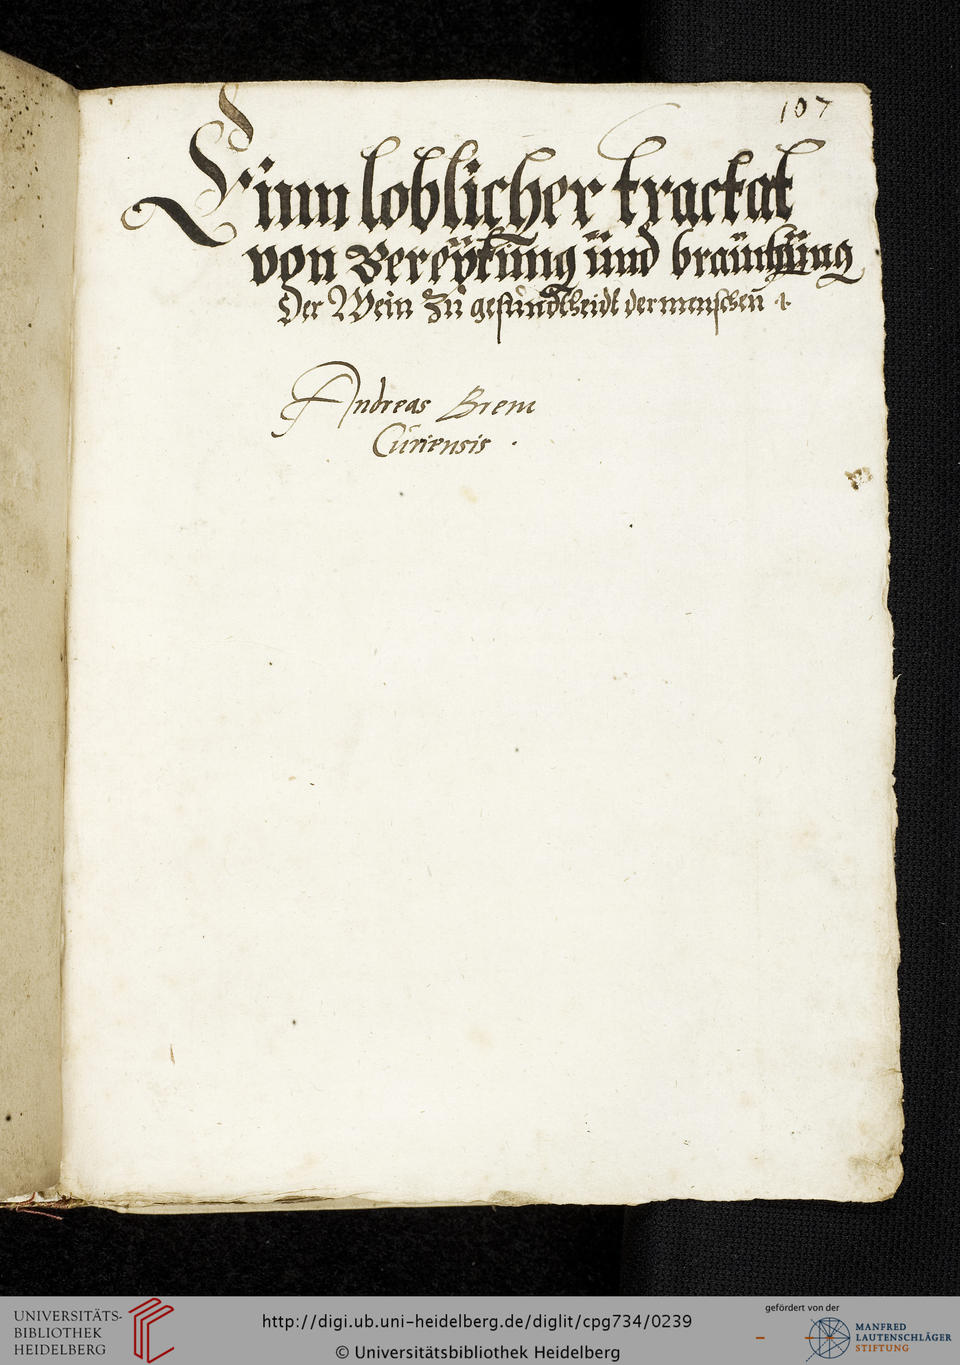 107
Einn loblicher tractat
von Bereÿtüng ünd braüchüng
Der Wein Zü gesündtheidt der menschen̄
Andreas Brem
Cüriensis .
UNIVERSITÄTS-
BIBLIOTHEK
HEIDELBERG
http://digi.ub.uni-heidelberg.de/diglit/cpg734/0239
© Universitätsbibliothek Heidelberg
gefördert von der
MANFRED
LAUTENSCHLÄGER
STIFTUNG